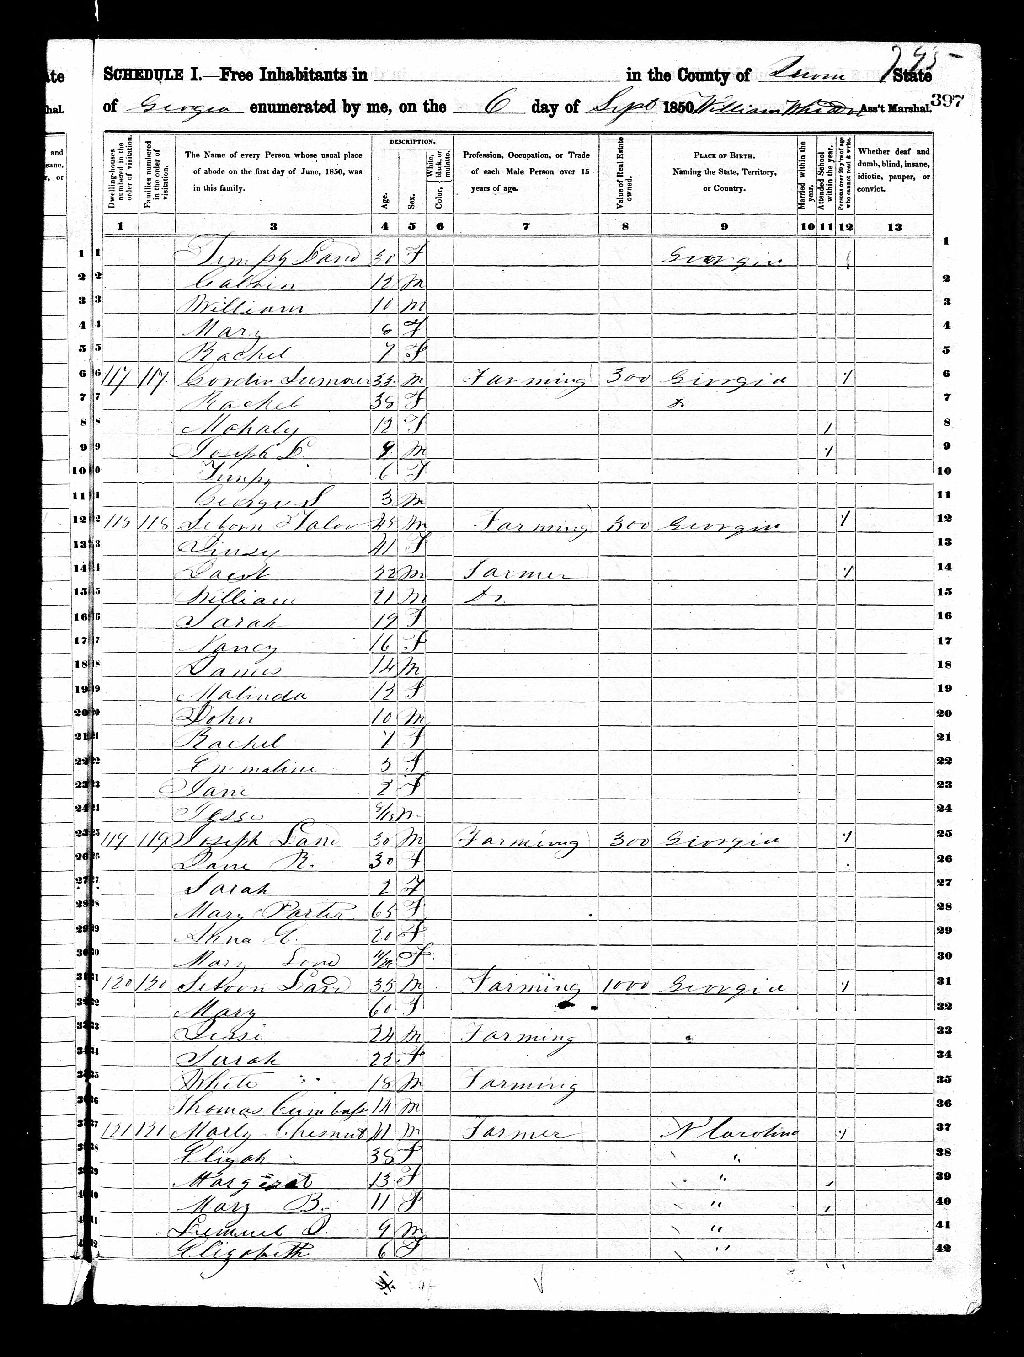 795
SCHEDULE I.—Free Inhabitants in in the County of State
of Georgia enumerated by me, on the 6 day of Sept 1850. William Ass't Marshal. 397
Dwelling-houses numbered in the order of visitation.
Families numbered in the order of visitation.
The Name of every Person whose usual place of abode on the first day of June, 1850, was in this family.
DESCRIPTION.
Age.
Sex.
Color, White, black, or mulatto.
Profession, Occupation, or Trade of each Male Person over 15 years of age.
Value of Real Estate owned.
PLACE OF BIRTH. Naming the State, Territory, or Country.
Married within the year.
Attended School within the year.
Persons over 20 y'rs of age who cannot read & write.
Whether deaf and dumb, blind, insane, idiotic, pauper, or convict.
1 3 4 5 6 7 8 9 10 11 12 13
1 Timpy Land 30 F Georgia 1
2 Calvin 12 M 2
3 William 10 M 3
4 Mary 6 F 4
5 Rachel 7 F 5
6 117 117 33 M Farming 300 Georgia 1 6
7 Rachel 38 F 7
8 Mahaly 12 F 1 8
9 Joseph L 9 M 1 9
10 Timpy 6 F 10
11 George S 3 M 11
12 118 118 45 M Farming 300 Georgia 1 12
13 41 F 13
14 22 M Farmer 1 14
15 William 21 M Do 15
16 Sarah 19 F 16
17 Nancy 16 F 17
18 James 14 M 18
19 Malinda 13 F 19
20 John 10 M 20
21 Rachel 7 F 21
22 Emmaline 5 F 22
23 Jane 2 F 23
24 Jesse M 24
25 119 119 Joseph Land 30 M Farming 300 Georgia 1 25
26 Jane R. 30 F 26
27 Sarah 2 F 27
28 Mary Porter 65 F 28
29 Anna E. 20 F 29
30 Mary F 30
31 120 120 Land 35 M Farming 1000 Georgia 1 31
32 Mary 60 F 32
33 24 M Farming 33
34 Sarah 22 F 34
35 White " 18 M Farming 35
36 Thomas 14 M 36
37 121 121 Chesnut 41 M Farmer N Carolina 1 37
38 Elijah 38 F " 38
39 Margaret 13 F " 1 39
40 Mary B. 11 F " 1 40
41 Lemuel D. 9 M " 41
42 Elizabeth 6 F " 42